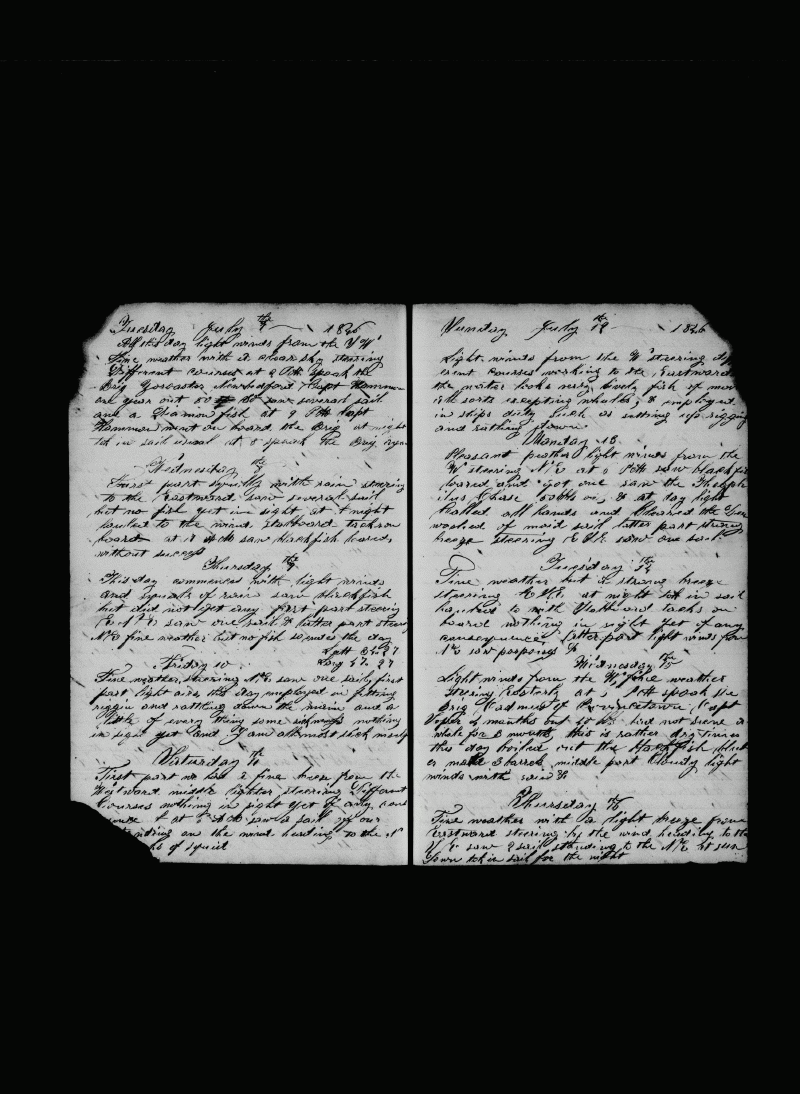 Tuesday July the 7 1846
All this day light winds from the SW
Fine weather with a clear sky steering
Different courses at 2 PM Spoak the
Brig Newbedford Capt Hammon
one year out 50 saw several sail
and a Diamon fish at 9 PM Capt
Hammon went on board the Brig at night
tok in sail usual at 8 the Brig
Wednesday the 8
First part squally with rain steering
to the Eastward saw several sail
but no fish yet in sight at night
to the wind starboard tacks on
board at saw blackfish lowerd
without success
Thursday the 9
This day commences with light winds
and squals of rain saw blackfish
but did not get any first part steering
E N E saw one sail & latter part steering
NE fine weather but no fish so ends the day
Latt 27
Long 57. 27
Friday 10
Fine weather steering NE saw one sail first
part light airs the day imployed in fitting
riggin and rattling down the main and a
little of every thing some nothing
in sight yet and I am allmost sick
Saturday the 11
First part we had a fine breeze from the
Westward middle lighter steering Different
Courses nothing in sight yet of any cons
at saw a sail of our
standing on the wind heading to the N
of squid
Sunday July the 12 1846
Light winds from the W steering dif
erent courses working to the Eastward
the water looks very lively fish of mor
all sorts excepting whales, & employed
in ships duty such as setting up riggin
and ratling down
Monday 13
Pleasant weather light winds from the
W steering N E at PM saw blackfi
lowerd and got one saw the Theoph
ilus Chase & at day light
Called all hands and cleared the
washed of maid sail latter part strong
breeze steering E SE saw one sail
Tuesday the 14
Fine weather but a strong breeze
steering E at night tok in sail
to with Starbord tacks on
board nothing in sight yet of any
consequence latter part light winds from
NE saw &
Wednesday the 15
Light winds from the W, fine weather
Steering Easterly at PM spoak the
Brig Cadmus of Provincetown Capt
months out had not seene a
whale for 3 months, this is rather dry times
this day boiled out the blackfish blub
er made 3 barrels middle part Cloudy light
winds
Thursday the 16
Fine weather with a light breeze from
Eastward steering by the wind heading to the
S E saw 2 sail standing to the NE at sun
down tok in sail for the night